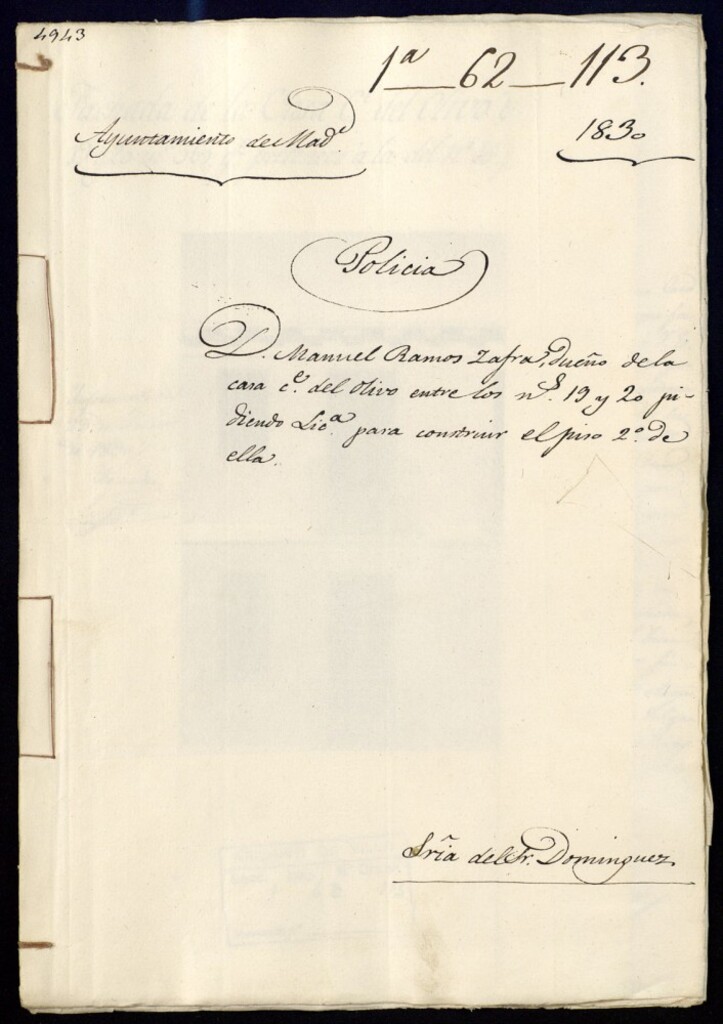 4943
1ª 62 113.
Ayuntamiento de Madᵈ.
1830
Policia
D. Manuel Ramos Zafra, dueño de la
casa cᵉ. del Olivo entre los nˢ. 19 y 20 pi-
diendo Licᵃ. para construir el piso 2º. de
ella.
Sria del Sr. Dominguez